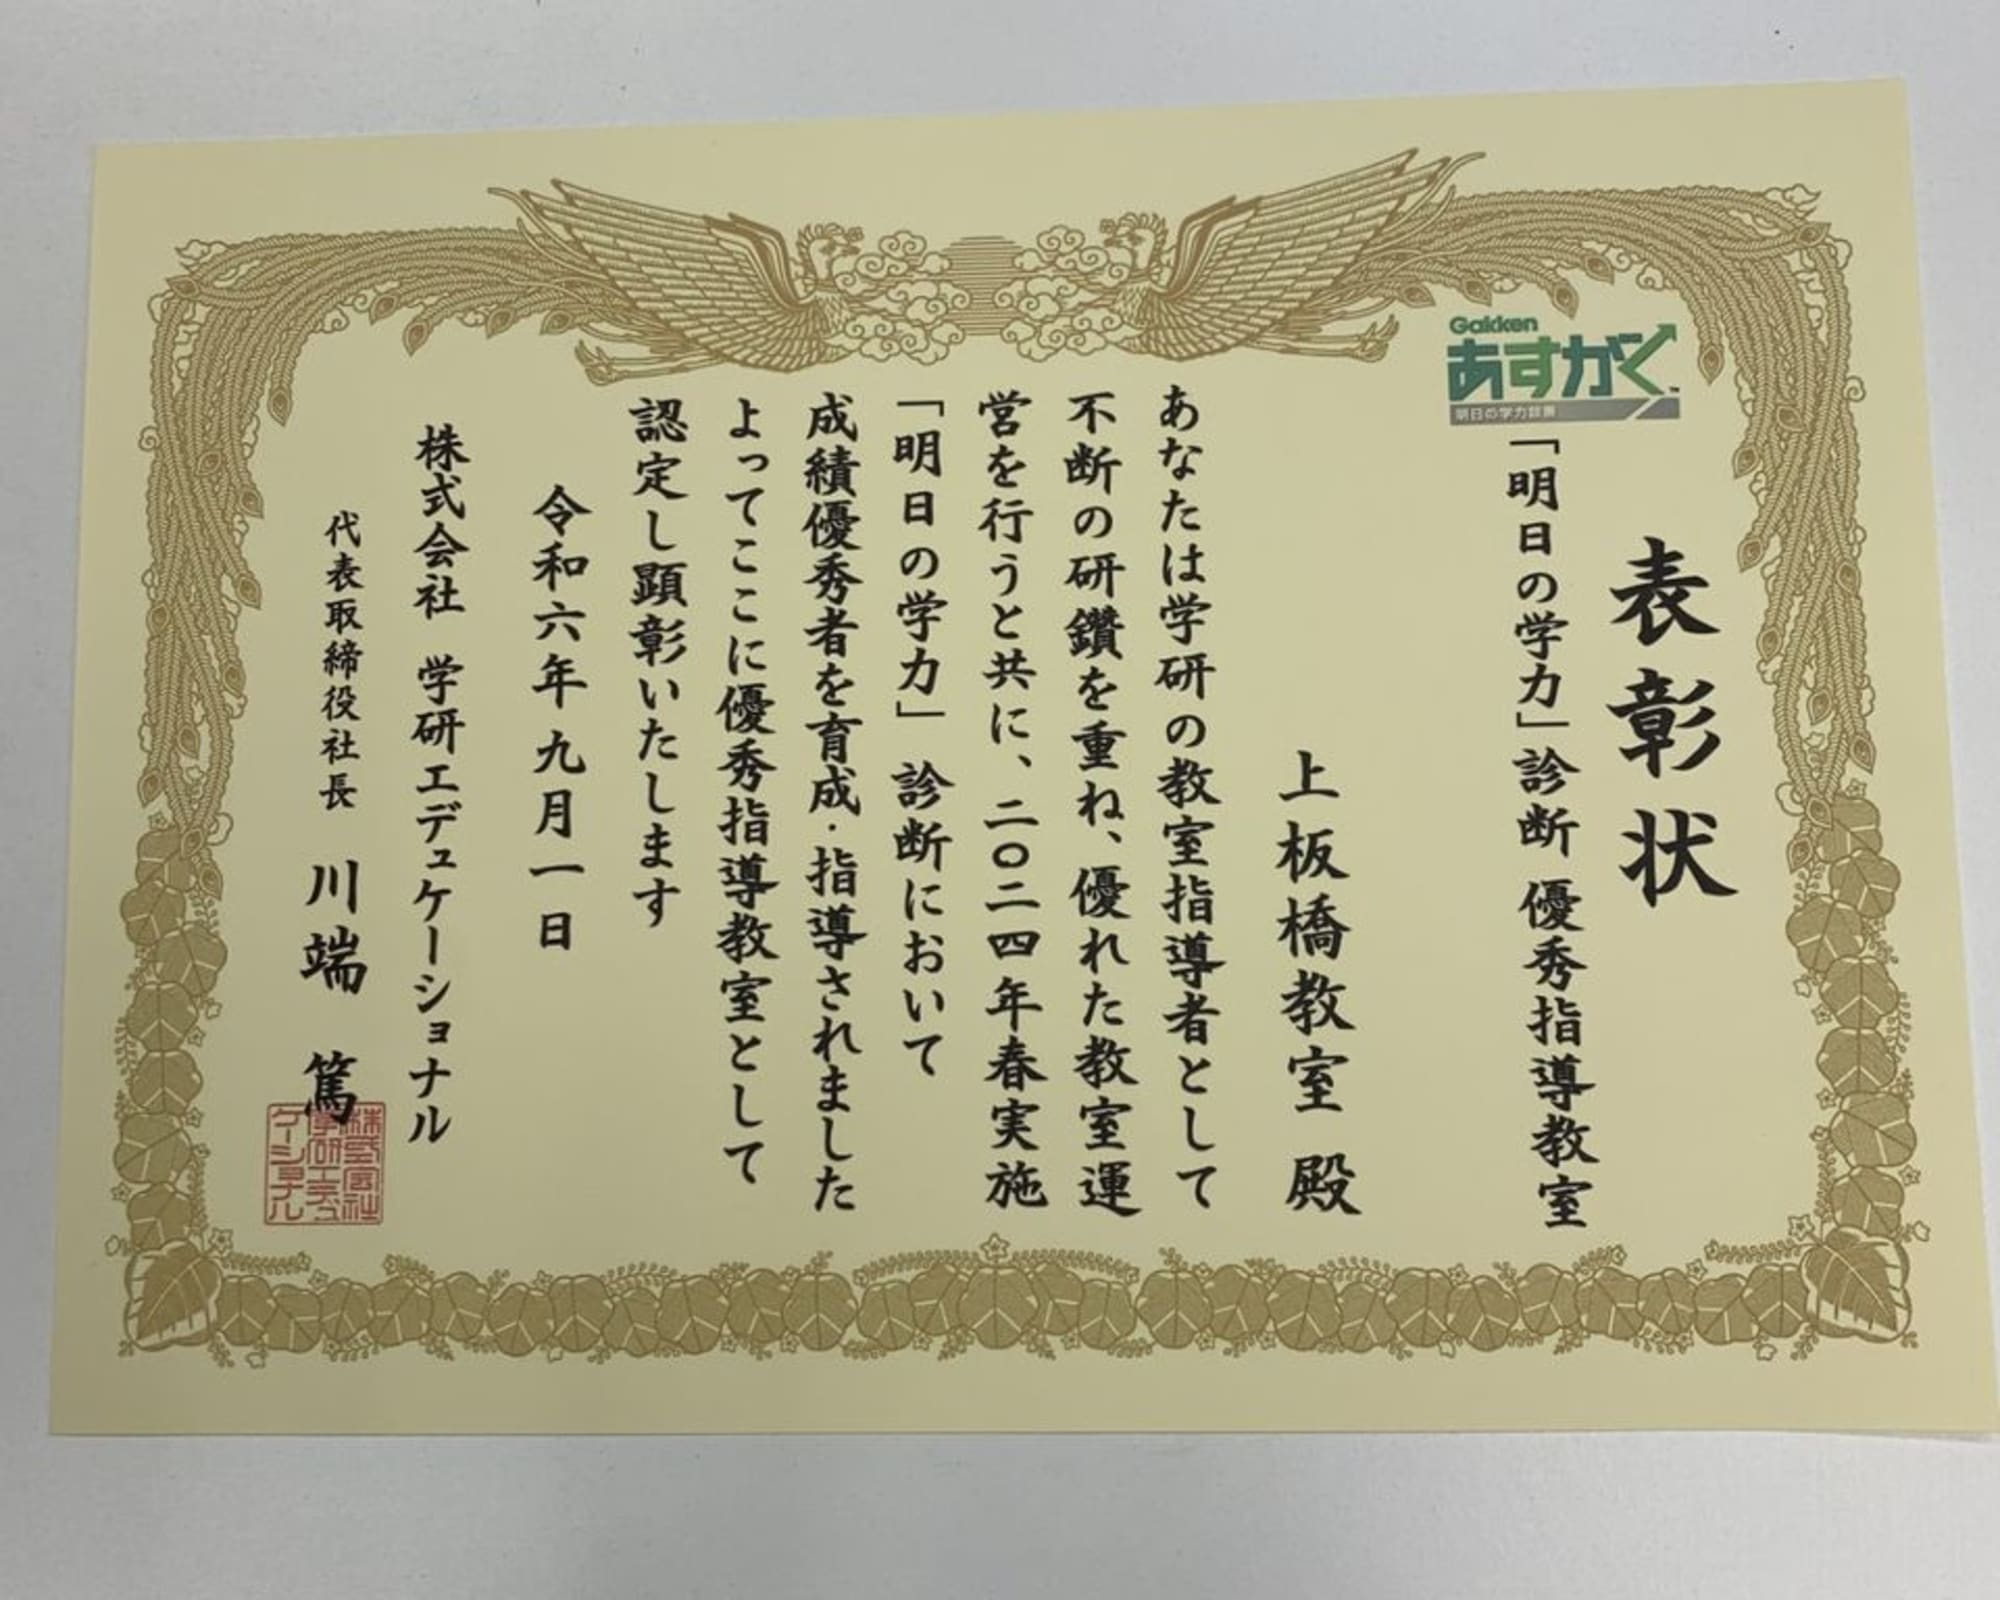 表彰状
Gakken
あすがく
明日の学力診断
「明日の学力」診断 優秀指導教室
上板橋教室 殿
あなたは学研の教室指導者として
不断の研鑽を重ね、優れた教室運
営を行うと共に、二〇二四年春実施
「明日の学力」診断において
成績優秀者を育成・指導されました
よってここに優秀指導教室として
認定し顕彰いたします
令和六年九月一日
株式会社 学研エデュケーショナル
代表取締役社長 川端 篤
株式会社
学研エデュ
ケーショナル